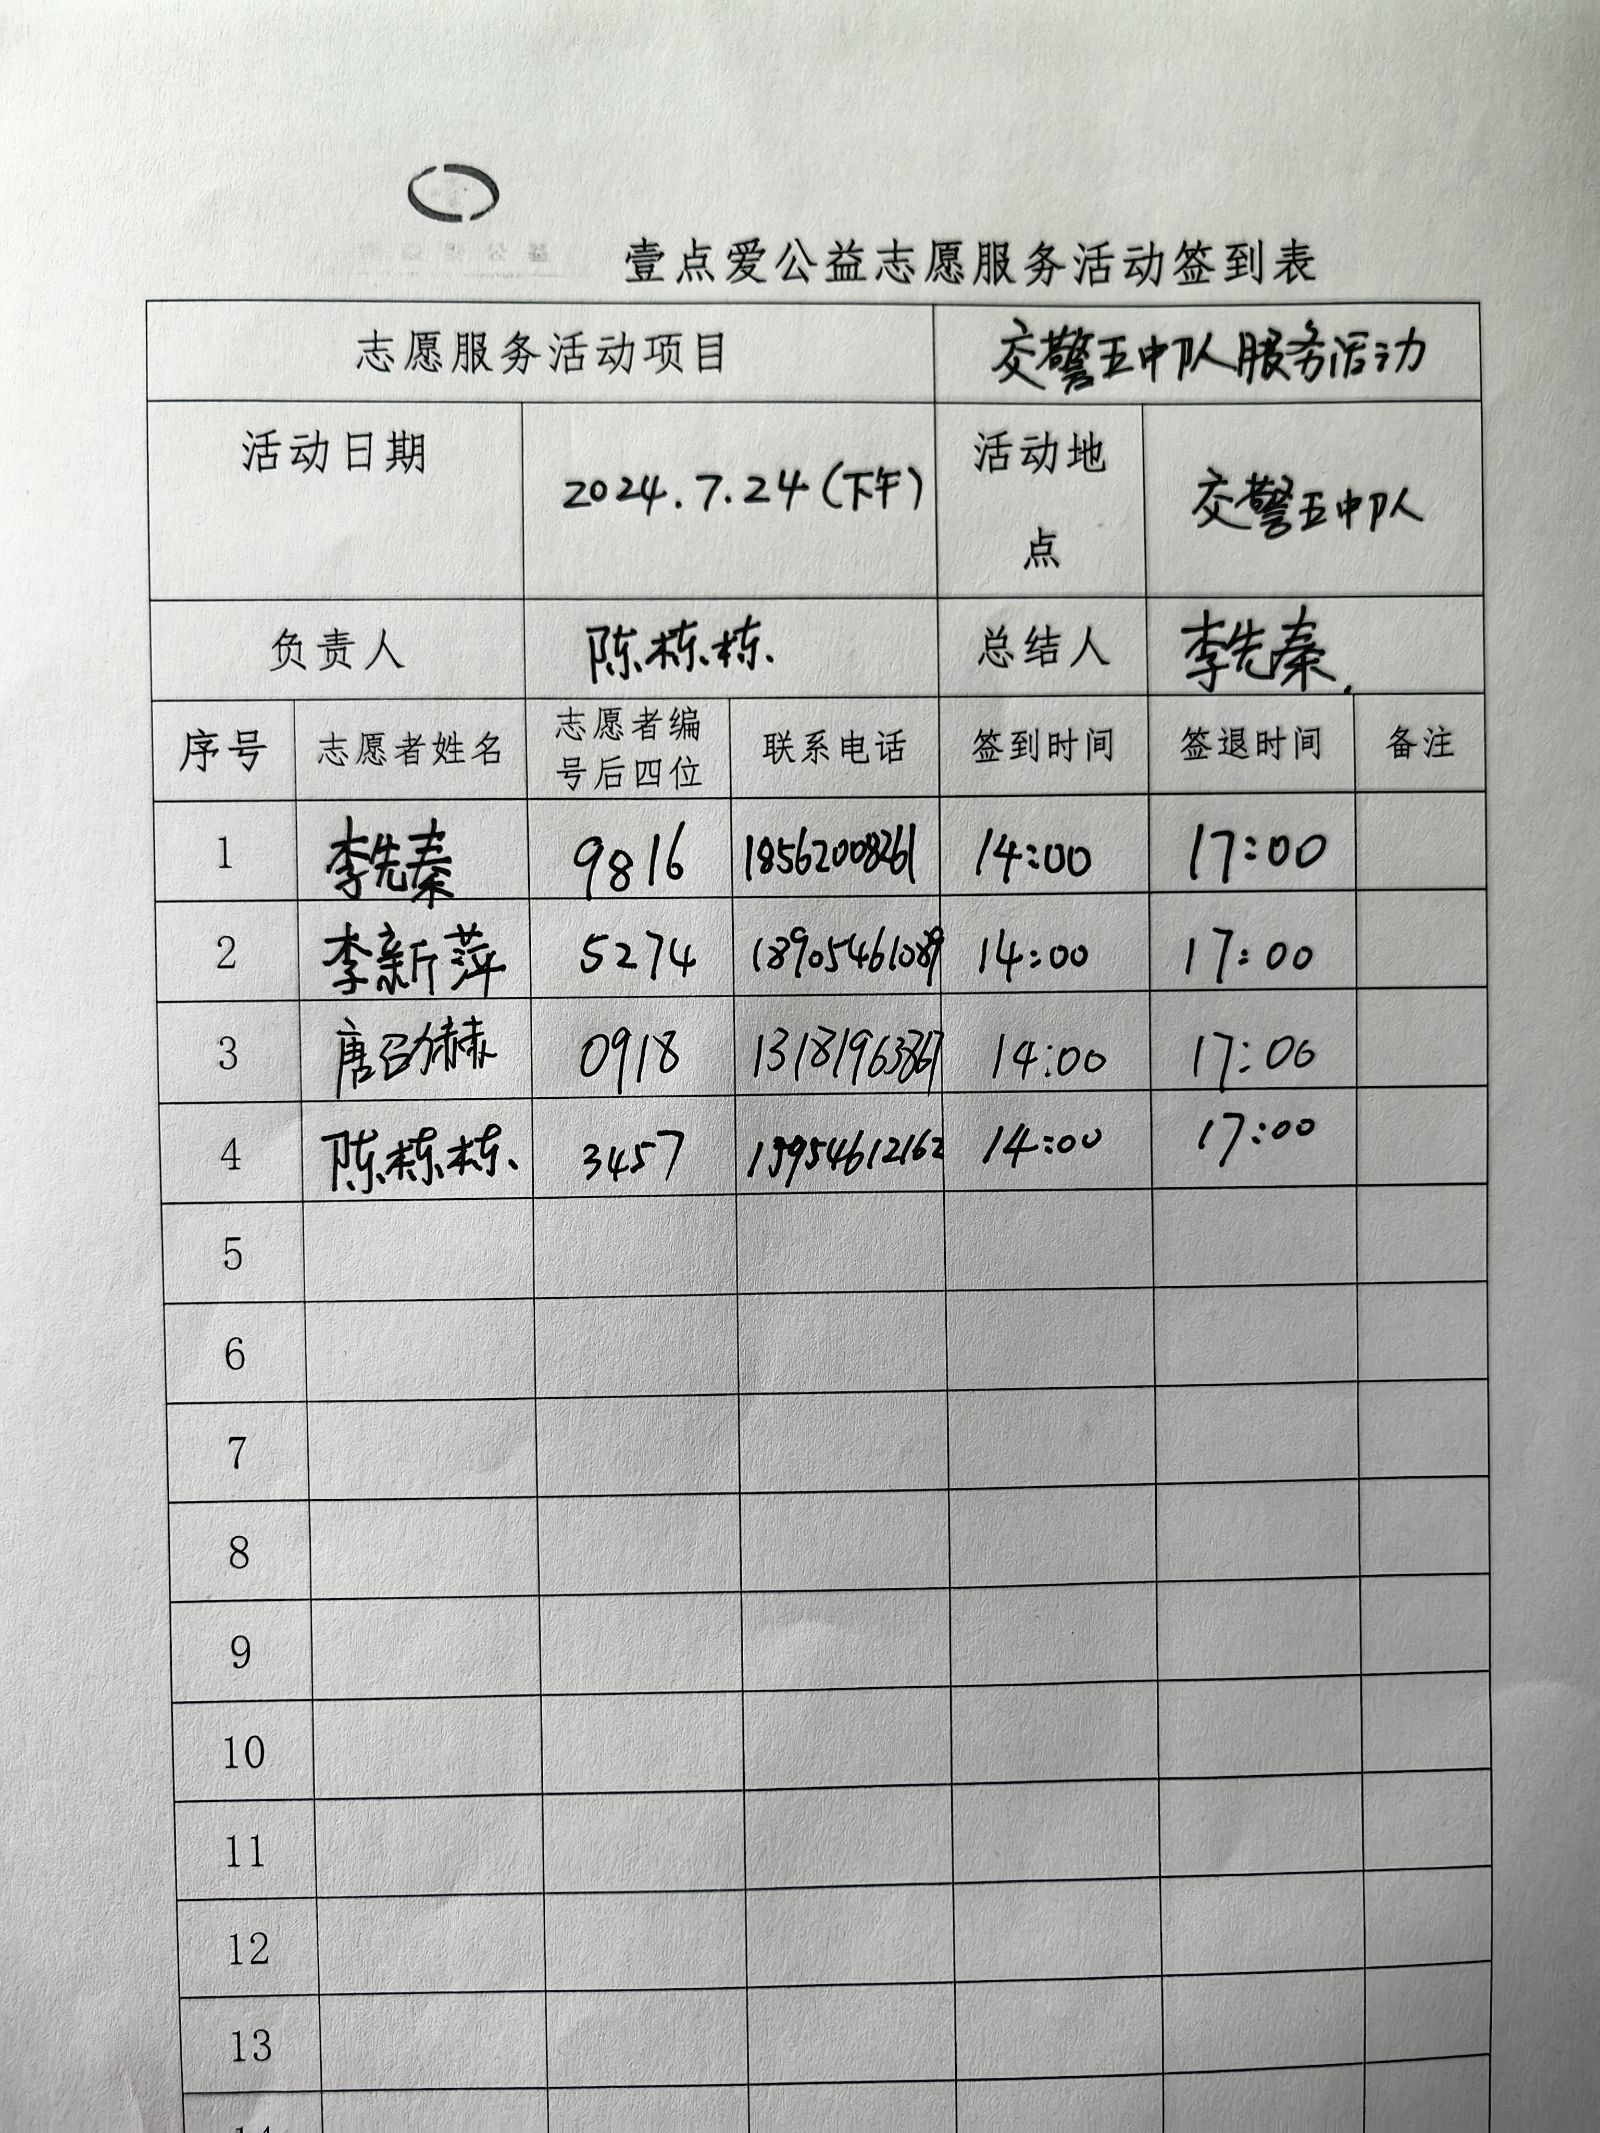 壹点爱公益志愿服务活动签到表
志愿服务活动项目 交警五中队服务活动
活动日期 2024.7.24(下午) 活动地
点 交警五中队
负责人 陈栋栋 总结人 李先秦
序号 志愿者姓名 志愿者编
号后四位 联系电话 签到时间 签退时间 备注
1 李先秦 9816 18562008261 14:00 17:00
2 李新萍 5274 18905461089 14:00 17:00
3 唐召赫 0918 13181963867 14:00 17:00
4 陈栋栋 3457 15954612162 14:00 17:00
5
6
7
8
9
10
11
12
13